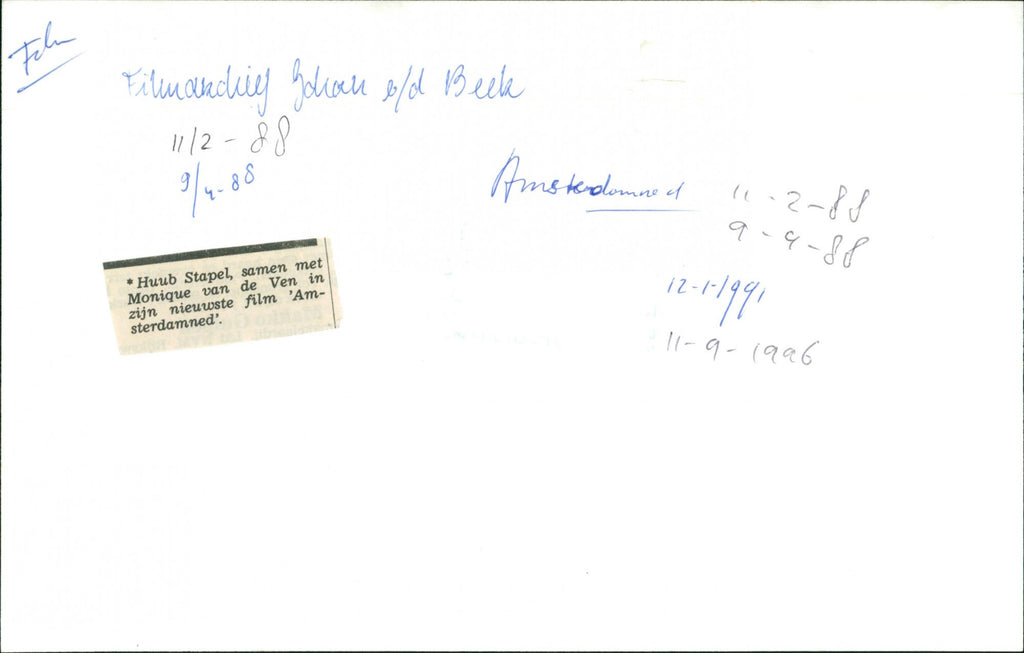 Film
Filmarchief Johan v/d Beek
11/2 - 88
9/4-88
Amsterdamned
11-2-88
9-4-88
12-1-1991
11-9-1996
* Huub Stapel, samen met
Monique van de Ven in
zijn nieuwste film 'Am-
sterdamned'.